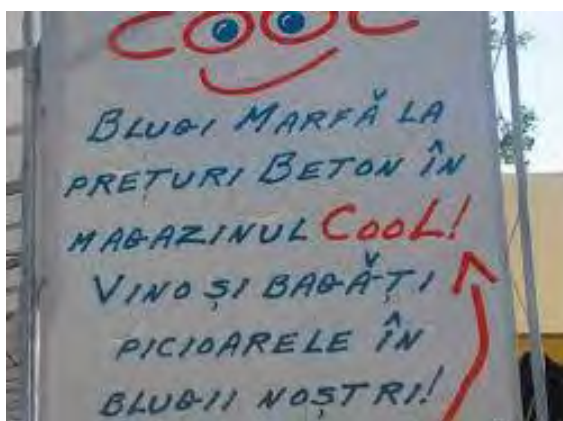 COOL
BLUGI MARFĂ LA
PREȚURI BETON ÎN
MAGAZINUL COOL!
VINO ȘI BAGĂȚI
PICIOARELE ÎN
BLUGII NOȘTRI!